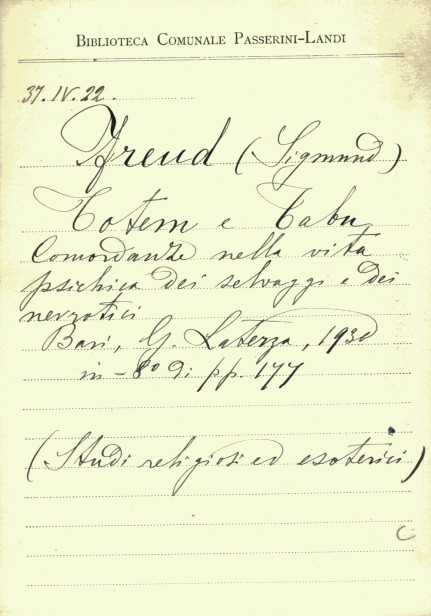 BIBLIOTECA COMUNALE PASSERINI-LANDI
37. IV. 22.
Freud (Sigmund)
Totem e Tabu
Comordanze nella vita
psichica dei selvaggi e dei
nevrotici
Bari, G. Laterza, 1930
in-8º g: pp. 177
(Studi religiosi ed esoterici)
C